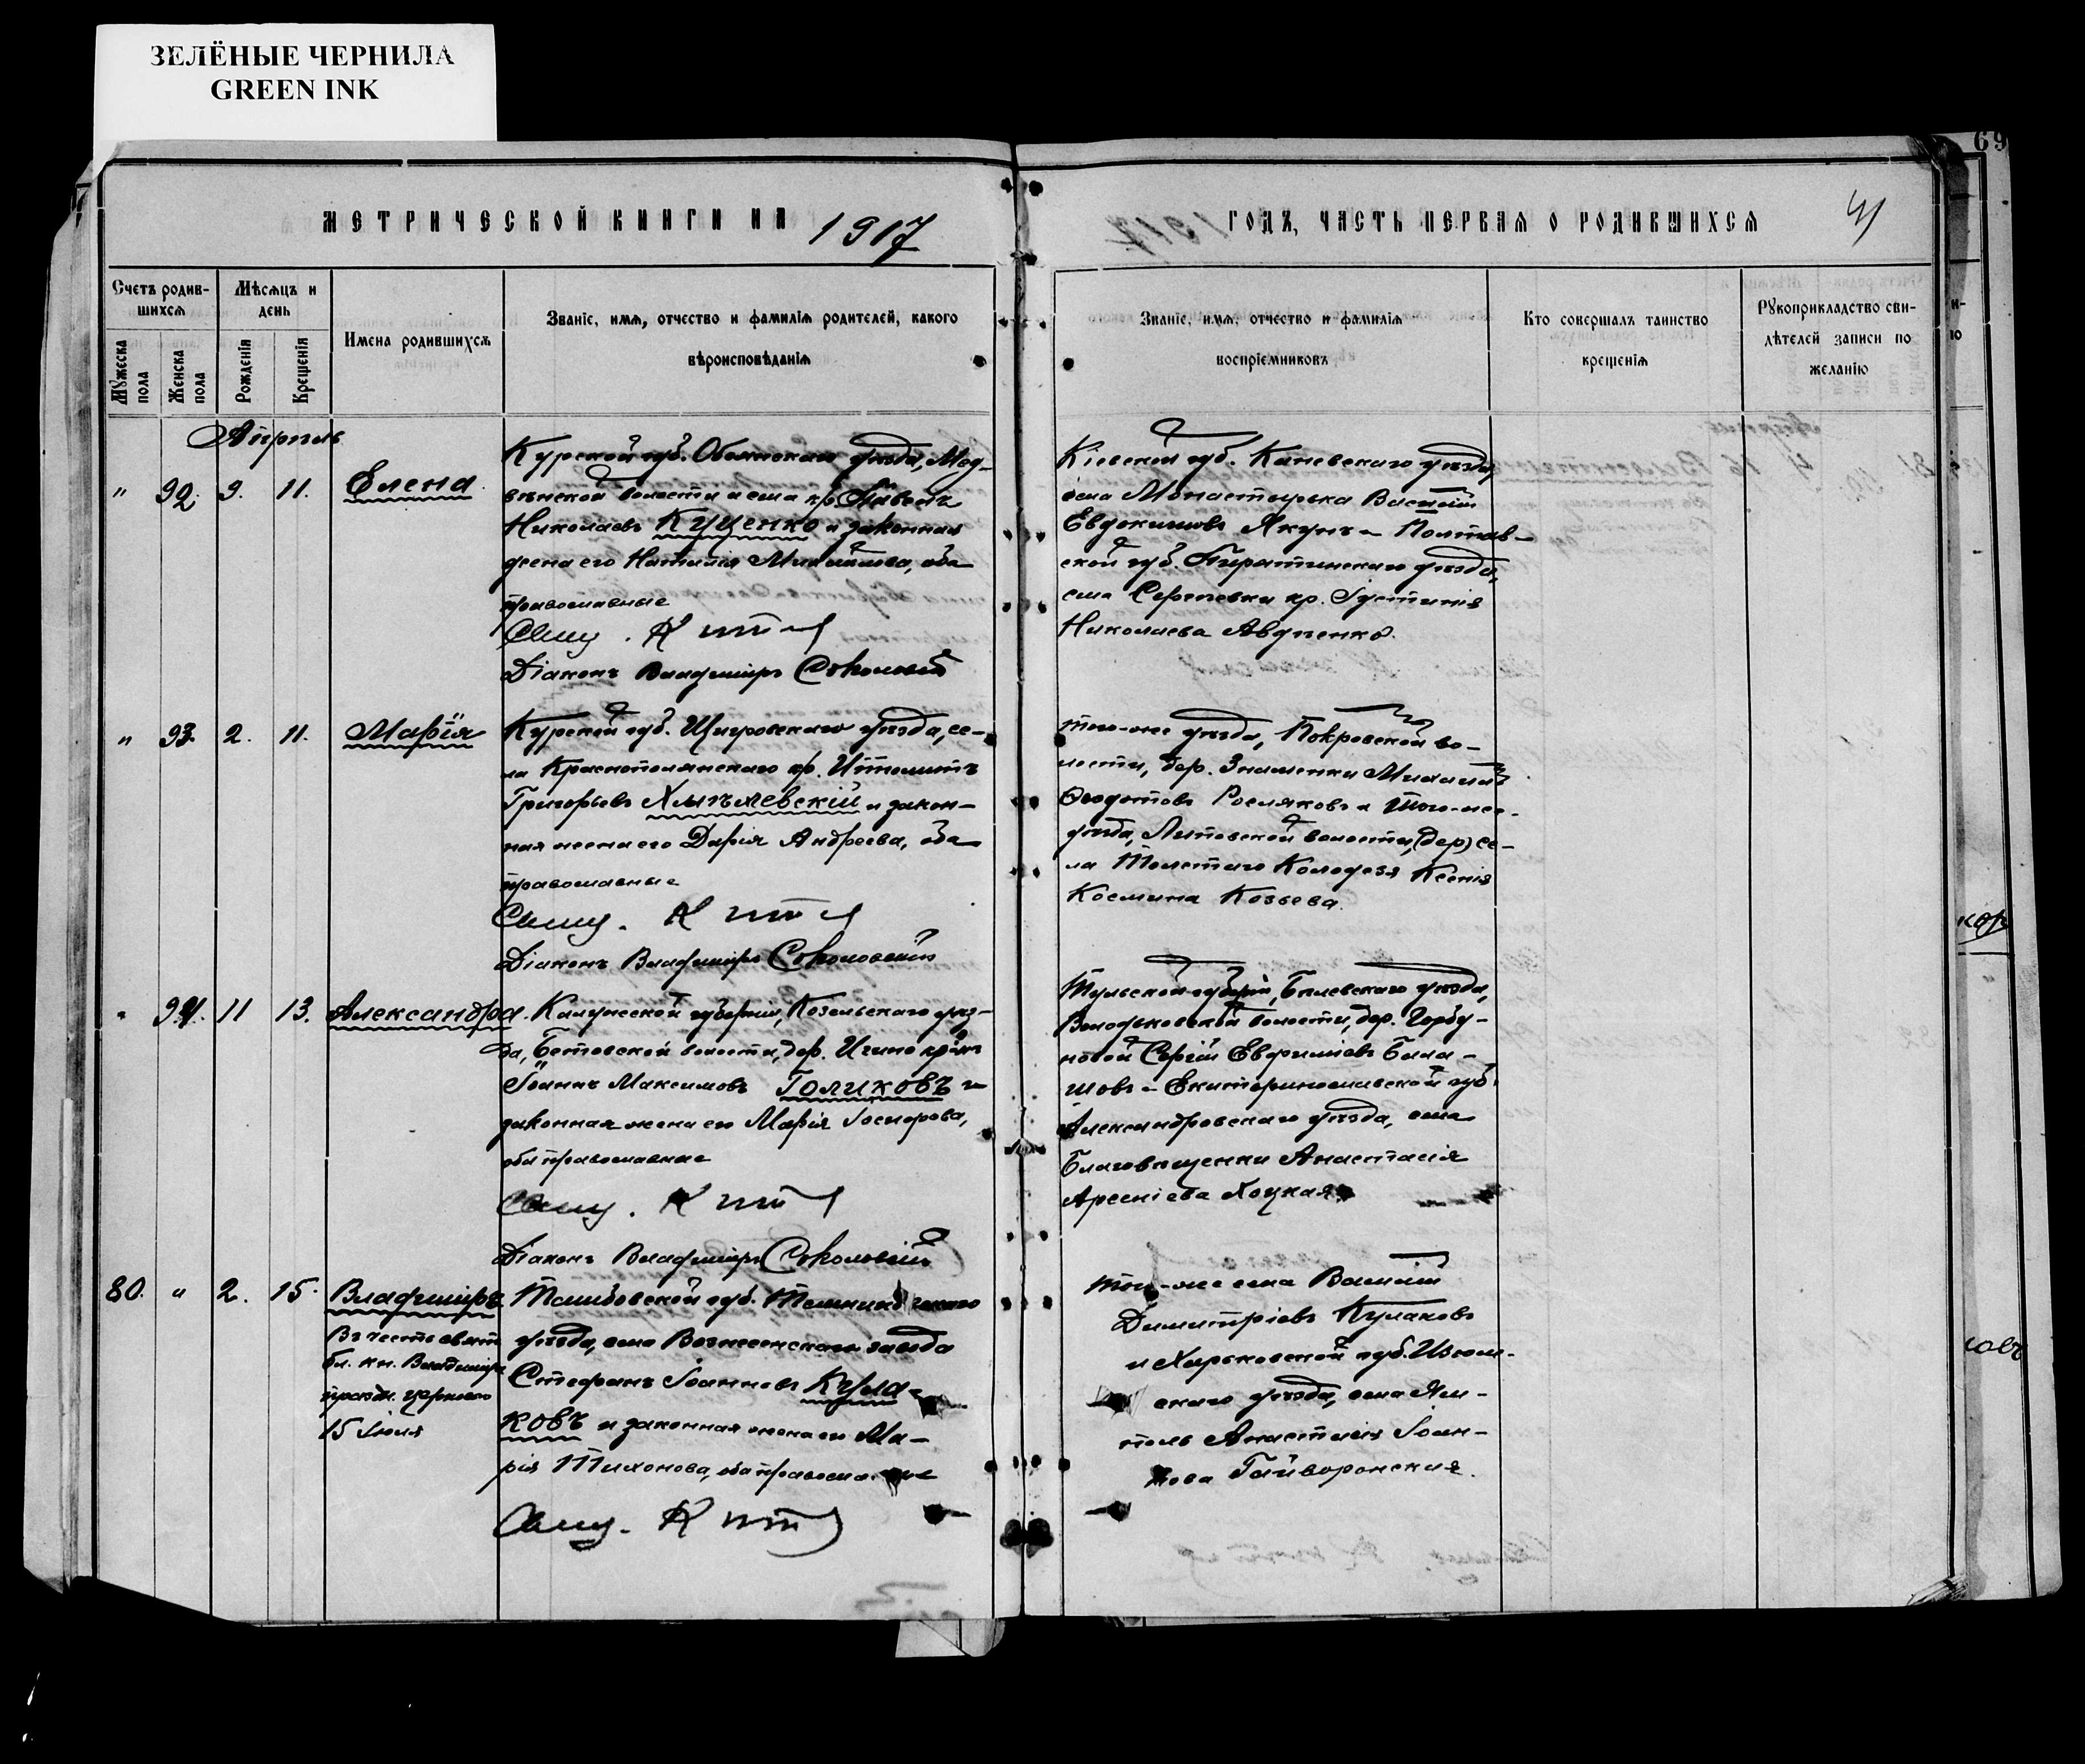 ЗЕЛЁНЫЕ ЧЕРНИЛА
GREEN INK
69
МЕТРИЧЕСКОЙ КНИГИ НА 1917
Счетъ родив-
шихся
Мѣсяцъ и
день
Мужеска пола
Женска пола
Рожденія
Крещенія
Имена родившихся
Званіе, имя, отчество и фамилія родителей, какого
вѣроисповѣданія
Апрѣль
" 92. 9. 11. Елена
Курской губ. Обоянскаго уѣзда, Мед-
вѣнской волости и села кр. Павелъ
Николаевъ Куценко и законная
жена его Наталія Михайлова, оба
православные
Свящ.
Діаконъ Владиміръ Соколовскій
" 93. 2. 11. Марія
Курской губ. Щигровскаго уѣзда, се-
ла Краснополянскаго кр. Ипполитъ
Григорьевъ Хмѣлевскій и закон-
ная жена его Дарія Андреева, оба
православные
Свящ.
Діаконъ Владиміръ Соколовскій
" 94. 11 13. Александра.
Калужской губерніи, Козельскаго уѣз-
да, Бетовской волости, дер.
Іоаннъ Максимовъ Голиковъ и
законная жена его Марія
оба православные
Свящ.
Діаконъ Владиміръ Соколовскій
80. " 2. 15. Владиміръ
Въ честь свят.
бл. кн. Владиміра
праздн. церковью
15 Іюля
Тамбовской губ. Темниковскаго
уѣзда, села Вознесенскаго завода
Стефанъ Іоанновъ Кула-
ковъ и законная жена его Ма-
рія Тихонова, оба православные
Свящ.
ГОДЪ, ЧАСТЬ ПЕРВАЯ О РОДИВШИХСЯ
Званіе, имя, отчество и фамилія
воспріемниковъ
Кто совершалъ таинство
крещенія
Рукоприкладство сви-
дѣтелей записи по
желанію
Кіевской губ. Каневскаго уѣзда,
села Монастырка Василій
Евдокимовъ Якунъ и Полтав-
ской губ. Пирятинскаго уѣзда,
села Сергѣевки кр. Іустинія
Николаева Авдиенко.
того-же уѣзда, Покровской во-
лости, дер. Знаменки Михаилъ
Ѳеодотовъ Росляковъ и того-же
уѣзда, Липовской волости, (дер) се-
ла Толстаго Колодезя Ксенія
Космина Козьева.
Тульской губерніи, Бѣлевскаго уѣзда,
волости, дер. Горбу-
новой Сергій Евфиміевъ Бала-
шовъ и Екатеринославской губ.
Александровскаго уѣзда, села
Благовѣщенки Анастасія
Арсеніева Хоцкая
того-же села Василій
Димитріевъ Кулаковъ
и Харьковской губ. Изюм-
скаго уѣзда, села Ям-
поль Анастасія Іоан-
нова Гайворонская.